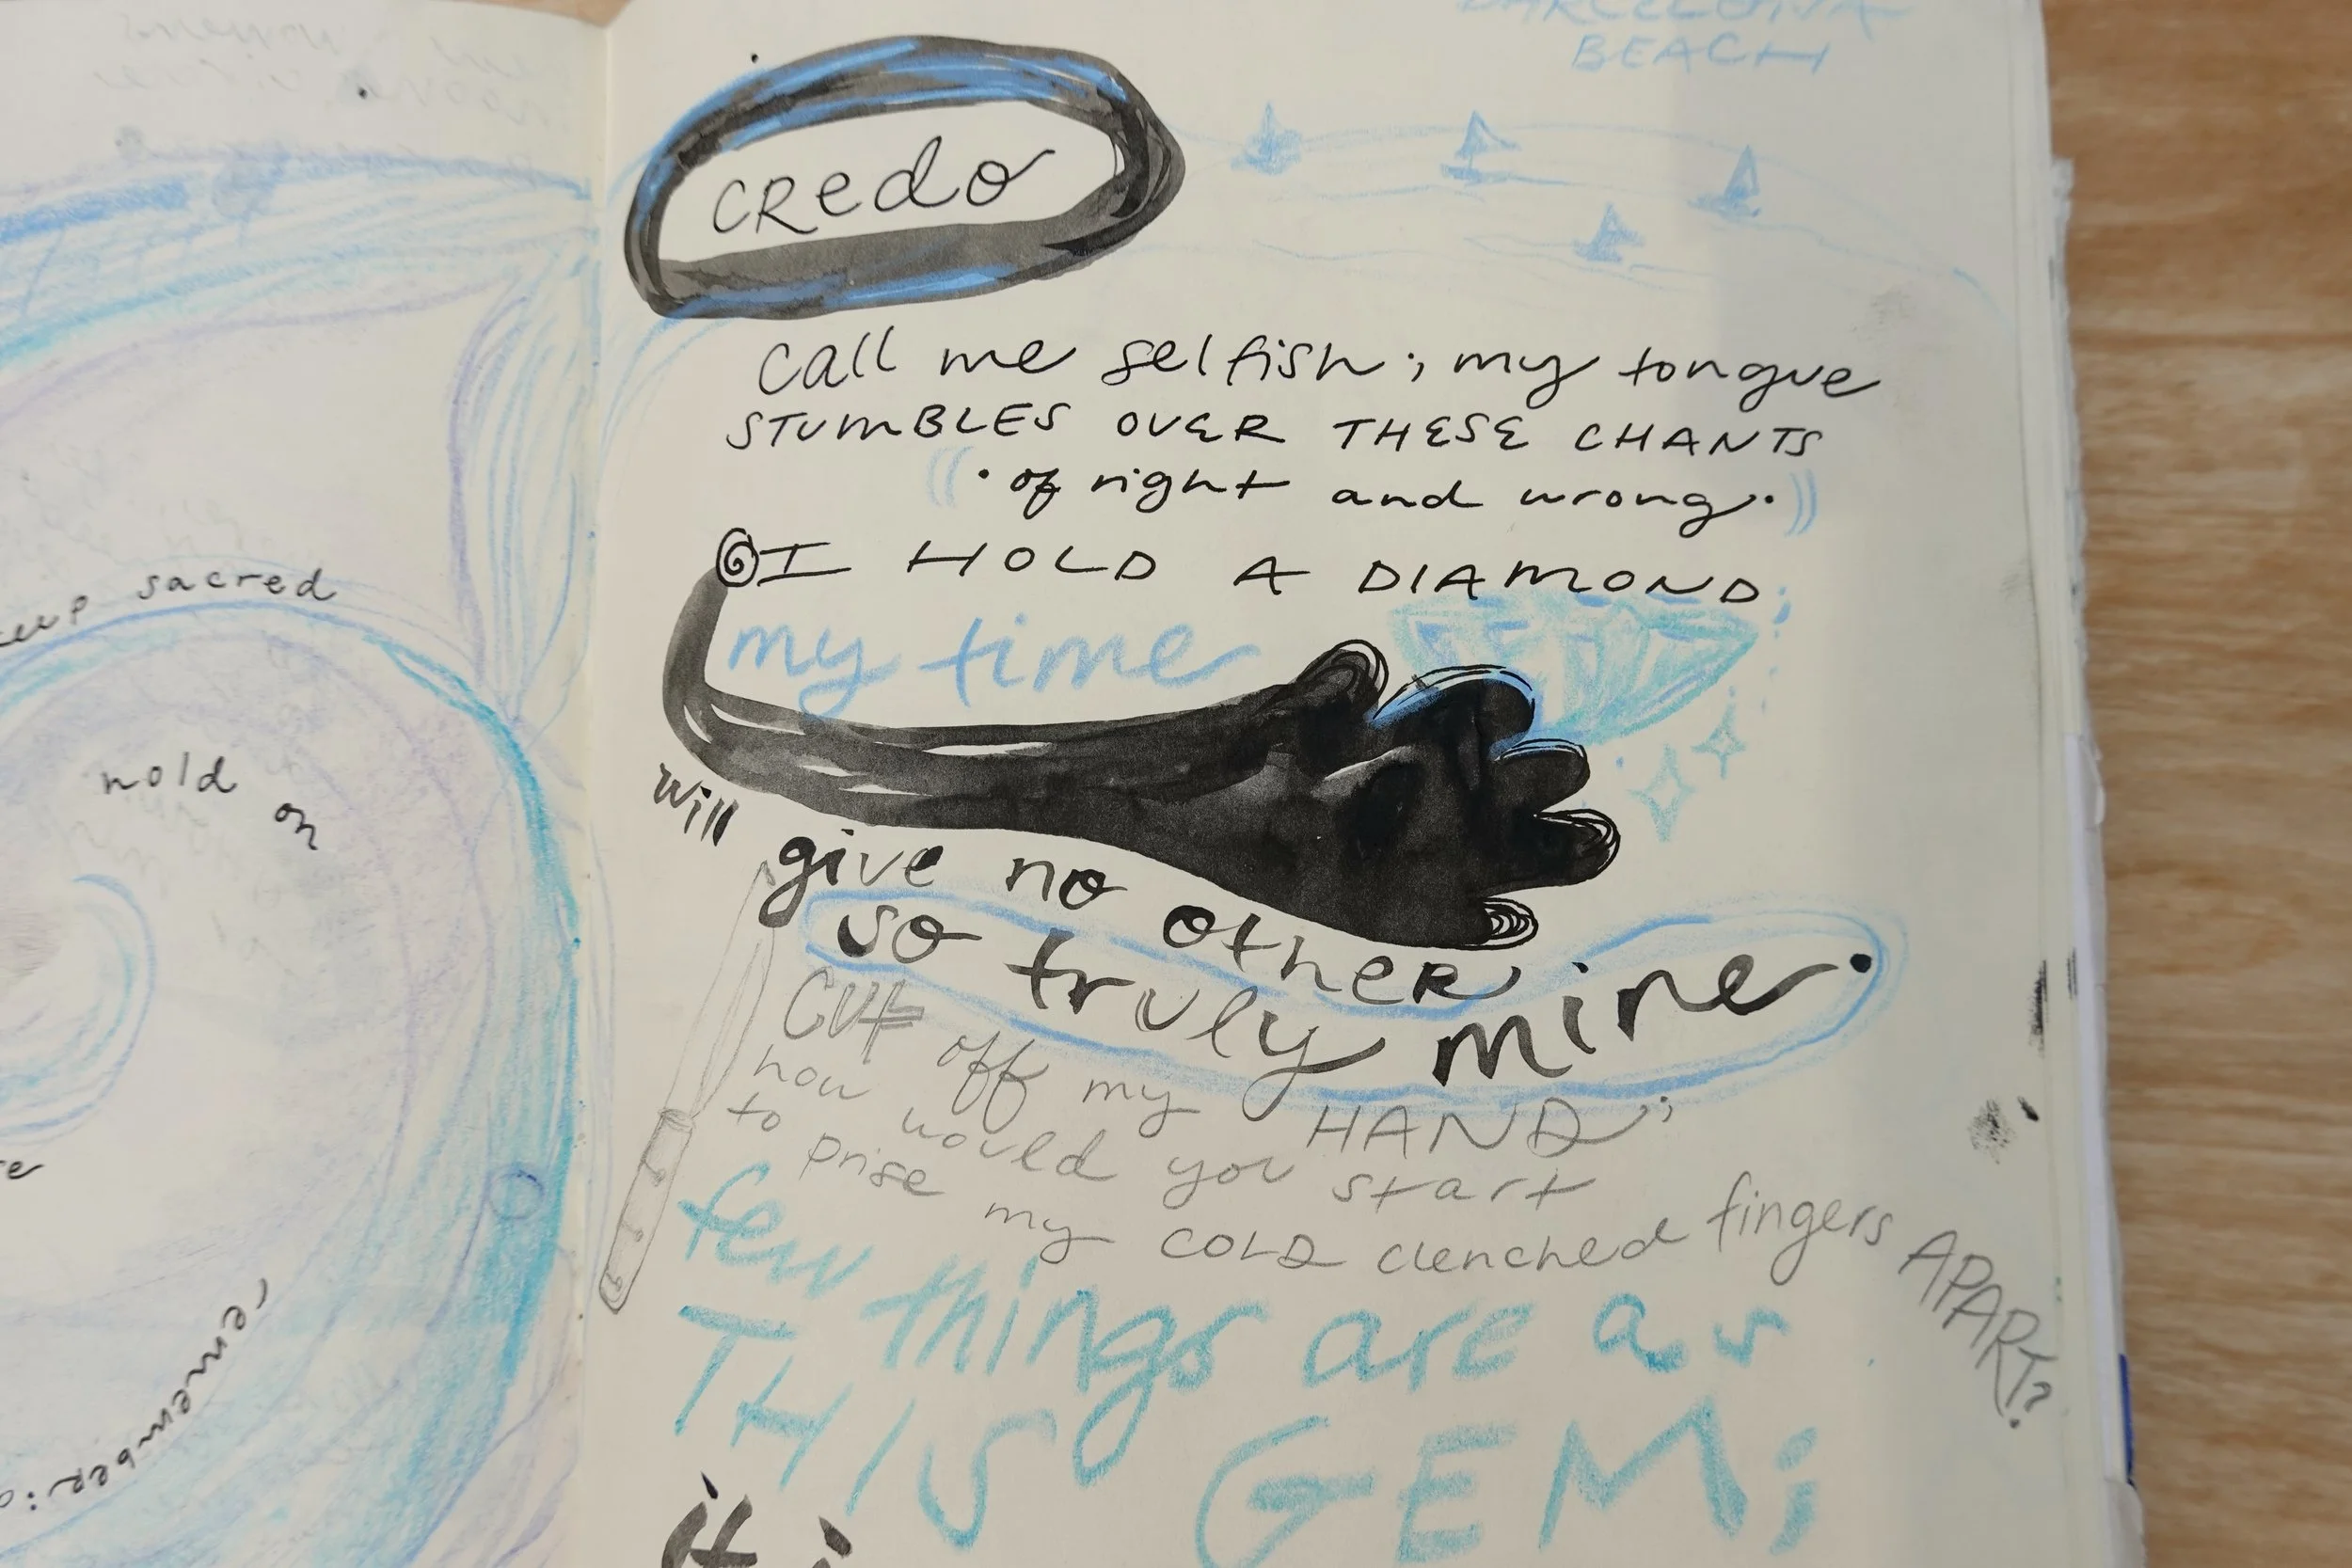 sacred
hold on
remember:
BARCELONA
BEACH
CRedo
Call me selfish; my tongue
STUMBLES OVER THESE CHANTS
((• of right and wrong.•))
I HOLD A DIAMOND,
my time
will give no other
so truly mine.
Cut off my HAND;
how would you start
to prise my COLD clenched fingers APART?
few things are as
THIS GEM;
it